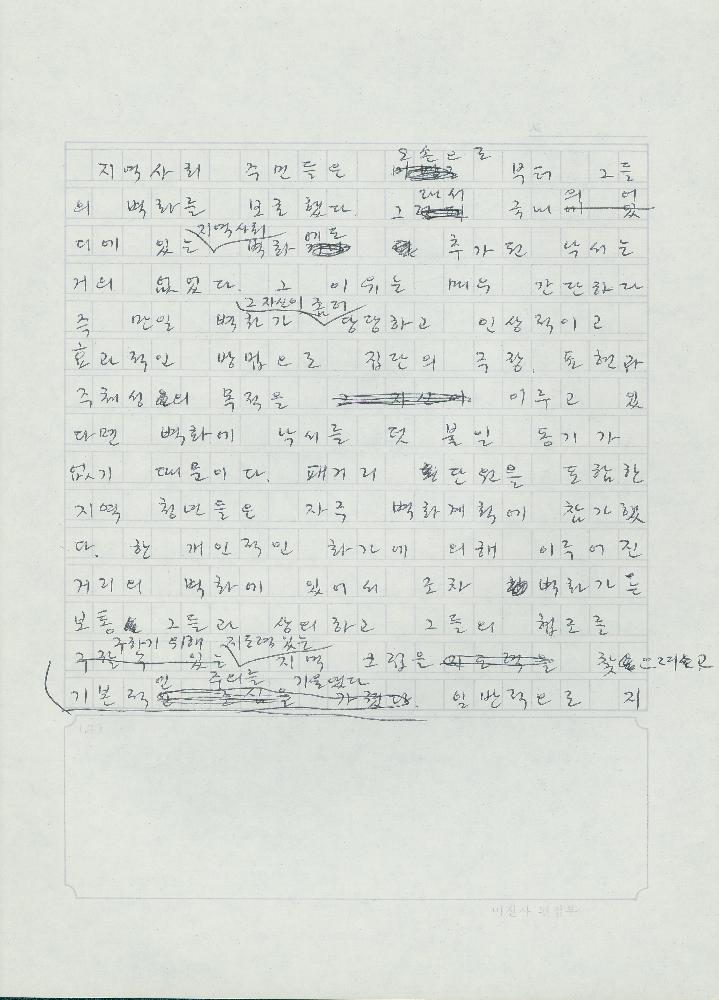 오손으로
지역사회 주민들은 부터 그들
래서 의 어
의 벽화를 보호했다. 그 국내에 있
지역사회 에도
디에 있는 벽화 추가된 낙서는
거의 없었다. 그 이유는 매우 간단하다
그 자신이 좀더
즉 만일 벽화가 당당하고 인상적이고
효과적인 방법으로 집단의 주장, 표현과
주체성의 목적을 그 자신이 이루고 있
다면 벽화에 낙서를 덧 붙일 동기가
없기 때문이다. 패거리 단원을 포함한
지역 청년들은 자주 벽화계획에 참가했
다. 한 개인적인 화가에 의해 이루어진
거리의 벽화에 있어서 조차 벽화가는
보통 그들과 상의하고 그들의 협조를
구하기 위해 지도력있는
구할 수 있는 지역 그룹을 지도력을 찾으려고
인 주의를 기울였다
기본적 중심을 일반적으로 지
미진사 편집부